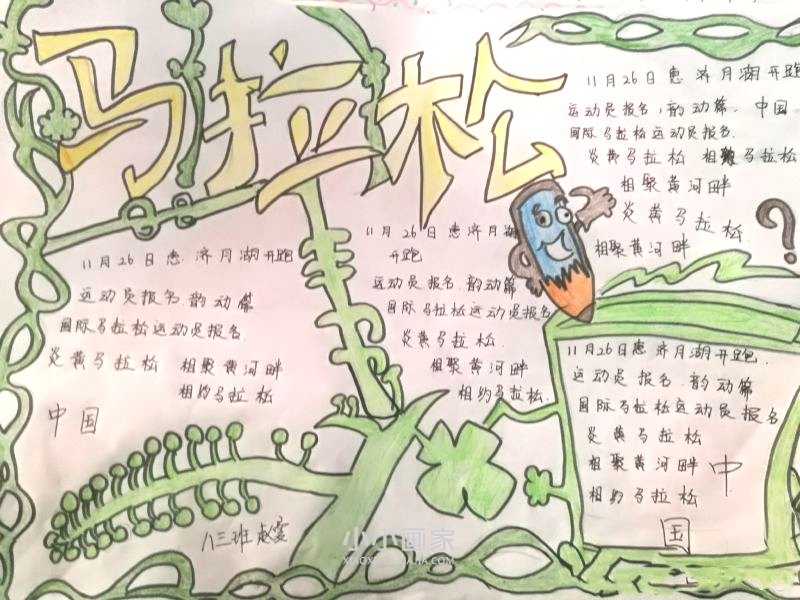 马拉松
11月26日惠济月湖开跑
运动员报名,韵动篇. 中国
国际马拉松运动员报名.
炎黄马拉松 相聚马拉松
相聚黄河畔
炎黄马拉松
相聚黄河畔
?
11月26日惠.济月湖开跑
运动员报名.韵动篇
国际马拉松运动员报名.
炎黄马拉松 相聚黄河畔
相约马拉松
中国
11月26日惠济月湖
开跑
运动员报名.韵动篇
国际马拉松运动员报名
炎黄马拉松
相聚黄河畔
相约马拉松.
11月26日惠济月湖开跑.
运动员报名.韵动篇
国际马拉松运动员报名
炎黄马拉松
相聚黄河畔 中
相约马拉松
国
八三班赵雯
小小画家